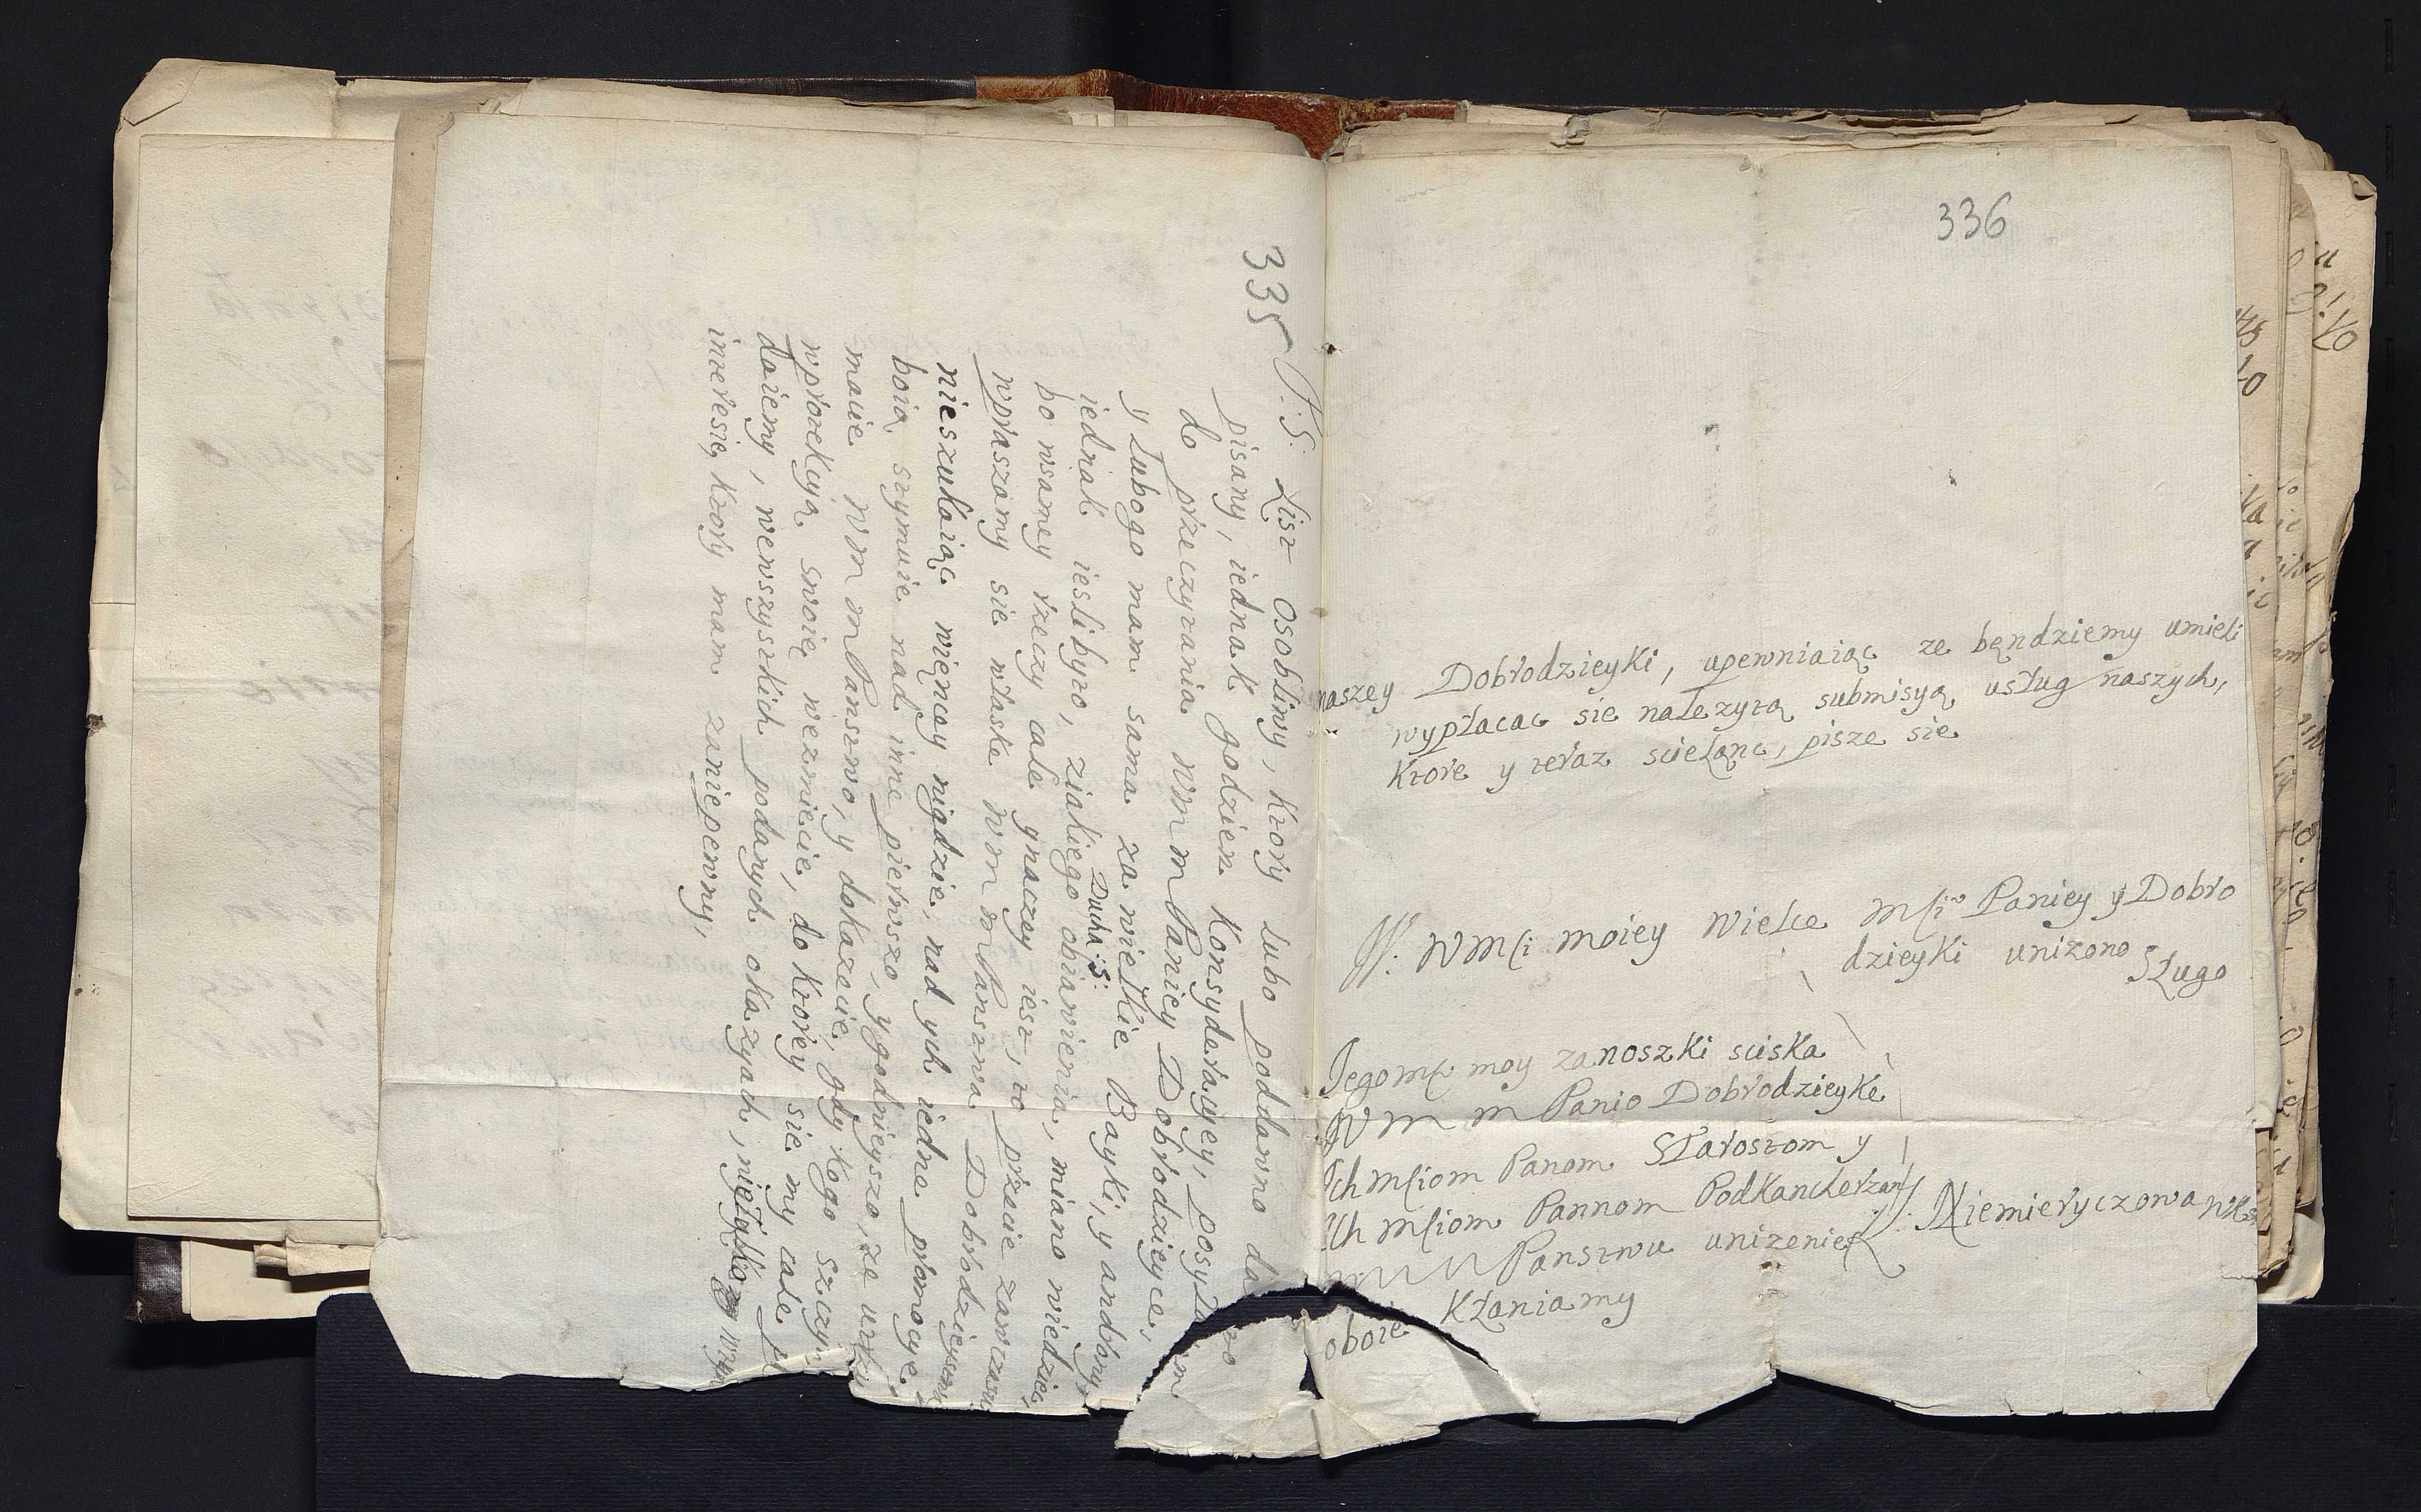 335
P.S. List osobliwy, ktory lubo poddawno
pisany, iednak godzien Konsyderacyey, posyła
do przeczytania WM M Paniey Dobrodzieyce,
y Lubogo mam sama za wielkie Bayki, y androny
iednak iesli byto, ziakiego Ducha S: obiawienia, miano wiedziec
bo wsamey rzeczy cale ynaczey iest, to przecie zawczasu
wpraszamy sie właske WM M Panstwa Dobrodzieystwa
nieszukaiąc więncey nigdzie, nad ych iedne promocye
boią szymuie nad inne pierwszo, y godnieyszo, ze
macie WM M Panstwo, y dokazecie, gdy kogo
wprotekcyą swoię wezmiecie, do ktorey sie my cale
daiemy, wewszystkich podanych okazyach, nietylko
interesie, ktory mam zaniepewny,
336
naszey Dobrodzieyki, upewniaiąc ze bęndziemy umieli
wypłacac sie należytą submisyą usług naszych,
ktore y teraz scieląnc, pisze sie
W: WMſi moiey Wielce Mſi Paniey y Dobro
dzieyki unizono
Sługo
Jegomſc moy zanoszki sciska
WM M Panio Dobrodzieyke
Ich Mſciom Panom Starostom y
Ich Mſciom Pannom Podkancherzan
Panstwu unizenie
oboie Kłaniamy
Niemieryczowa